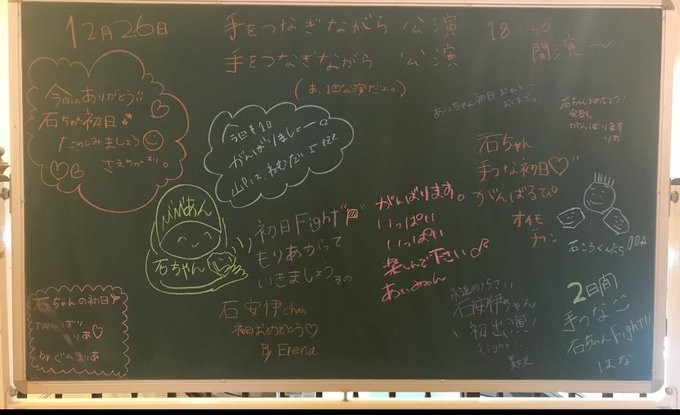 12月26日
手をつなぎながら 公演
手をつなぎながら 公演
18:30
開演〜
(あ、1回公演だよ。)
今日はありがとう!!
石ちゃん初日
たのしみましょう
さえちゃんより。
今日も1日
がんばりましょー。
あいちゃん初日おめでとう
石ちゃんおめでとう!
今日も
がんばり
石ちゃん
手つな初日♡
がんばるぴ。
オイモ
チャン
じゅりあん
石ちゃん
初日Fight
もりあがって
いきましょう
がんばります。
いっぱい
いっぱい
楽しんで下さい♪
あいみゃん
石ころくんたち
石ちゃんの初日
がんばり
byぐんまりあ
石安伊chan
初日おめでとう♡
By Erena
石安伊ちゃん
初出演
fight
2日間
手つな
石ちゃんFight!!
はな